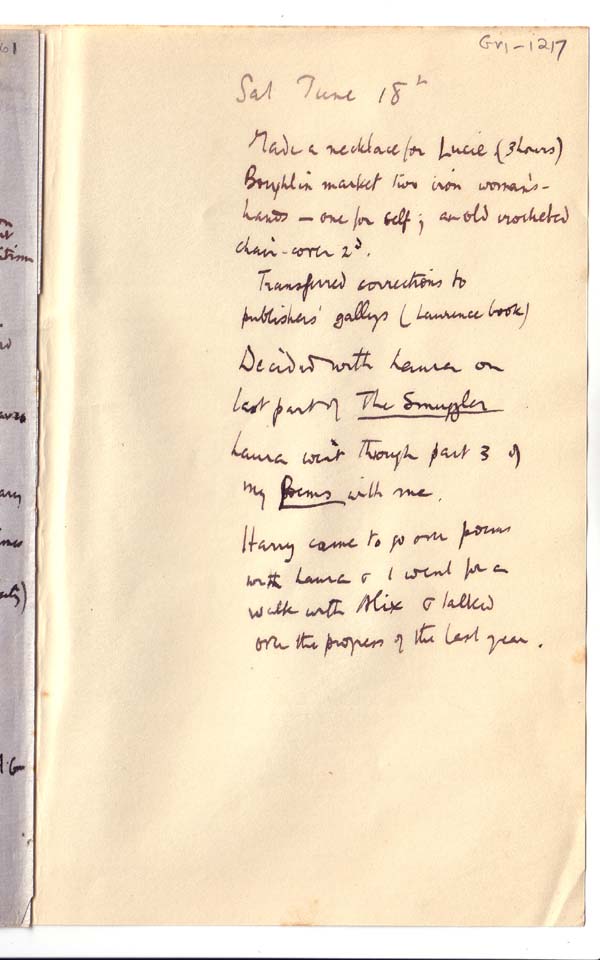 Gr1-1217
Sat June 18th
Made a necklace for Lucie (3 hours)
Bought in market two iron woman's-
hands — one for self; an old crocheted
chair-cover 2d.
Transferred corrections to
publishers' galleys (Lawrence book)
Decided with Laura on
last part of The Smuggler
Laura went through part 3 of
my Poems with me.
Harry came to go over poems
with Laura & I went for a
walk with Alix & talked
over the progress of the last year.